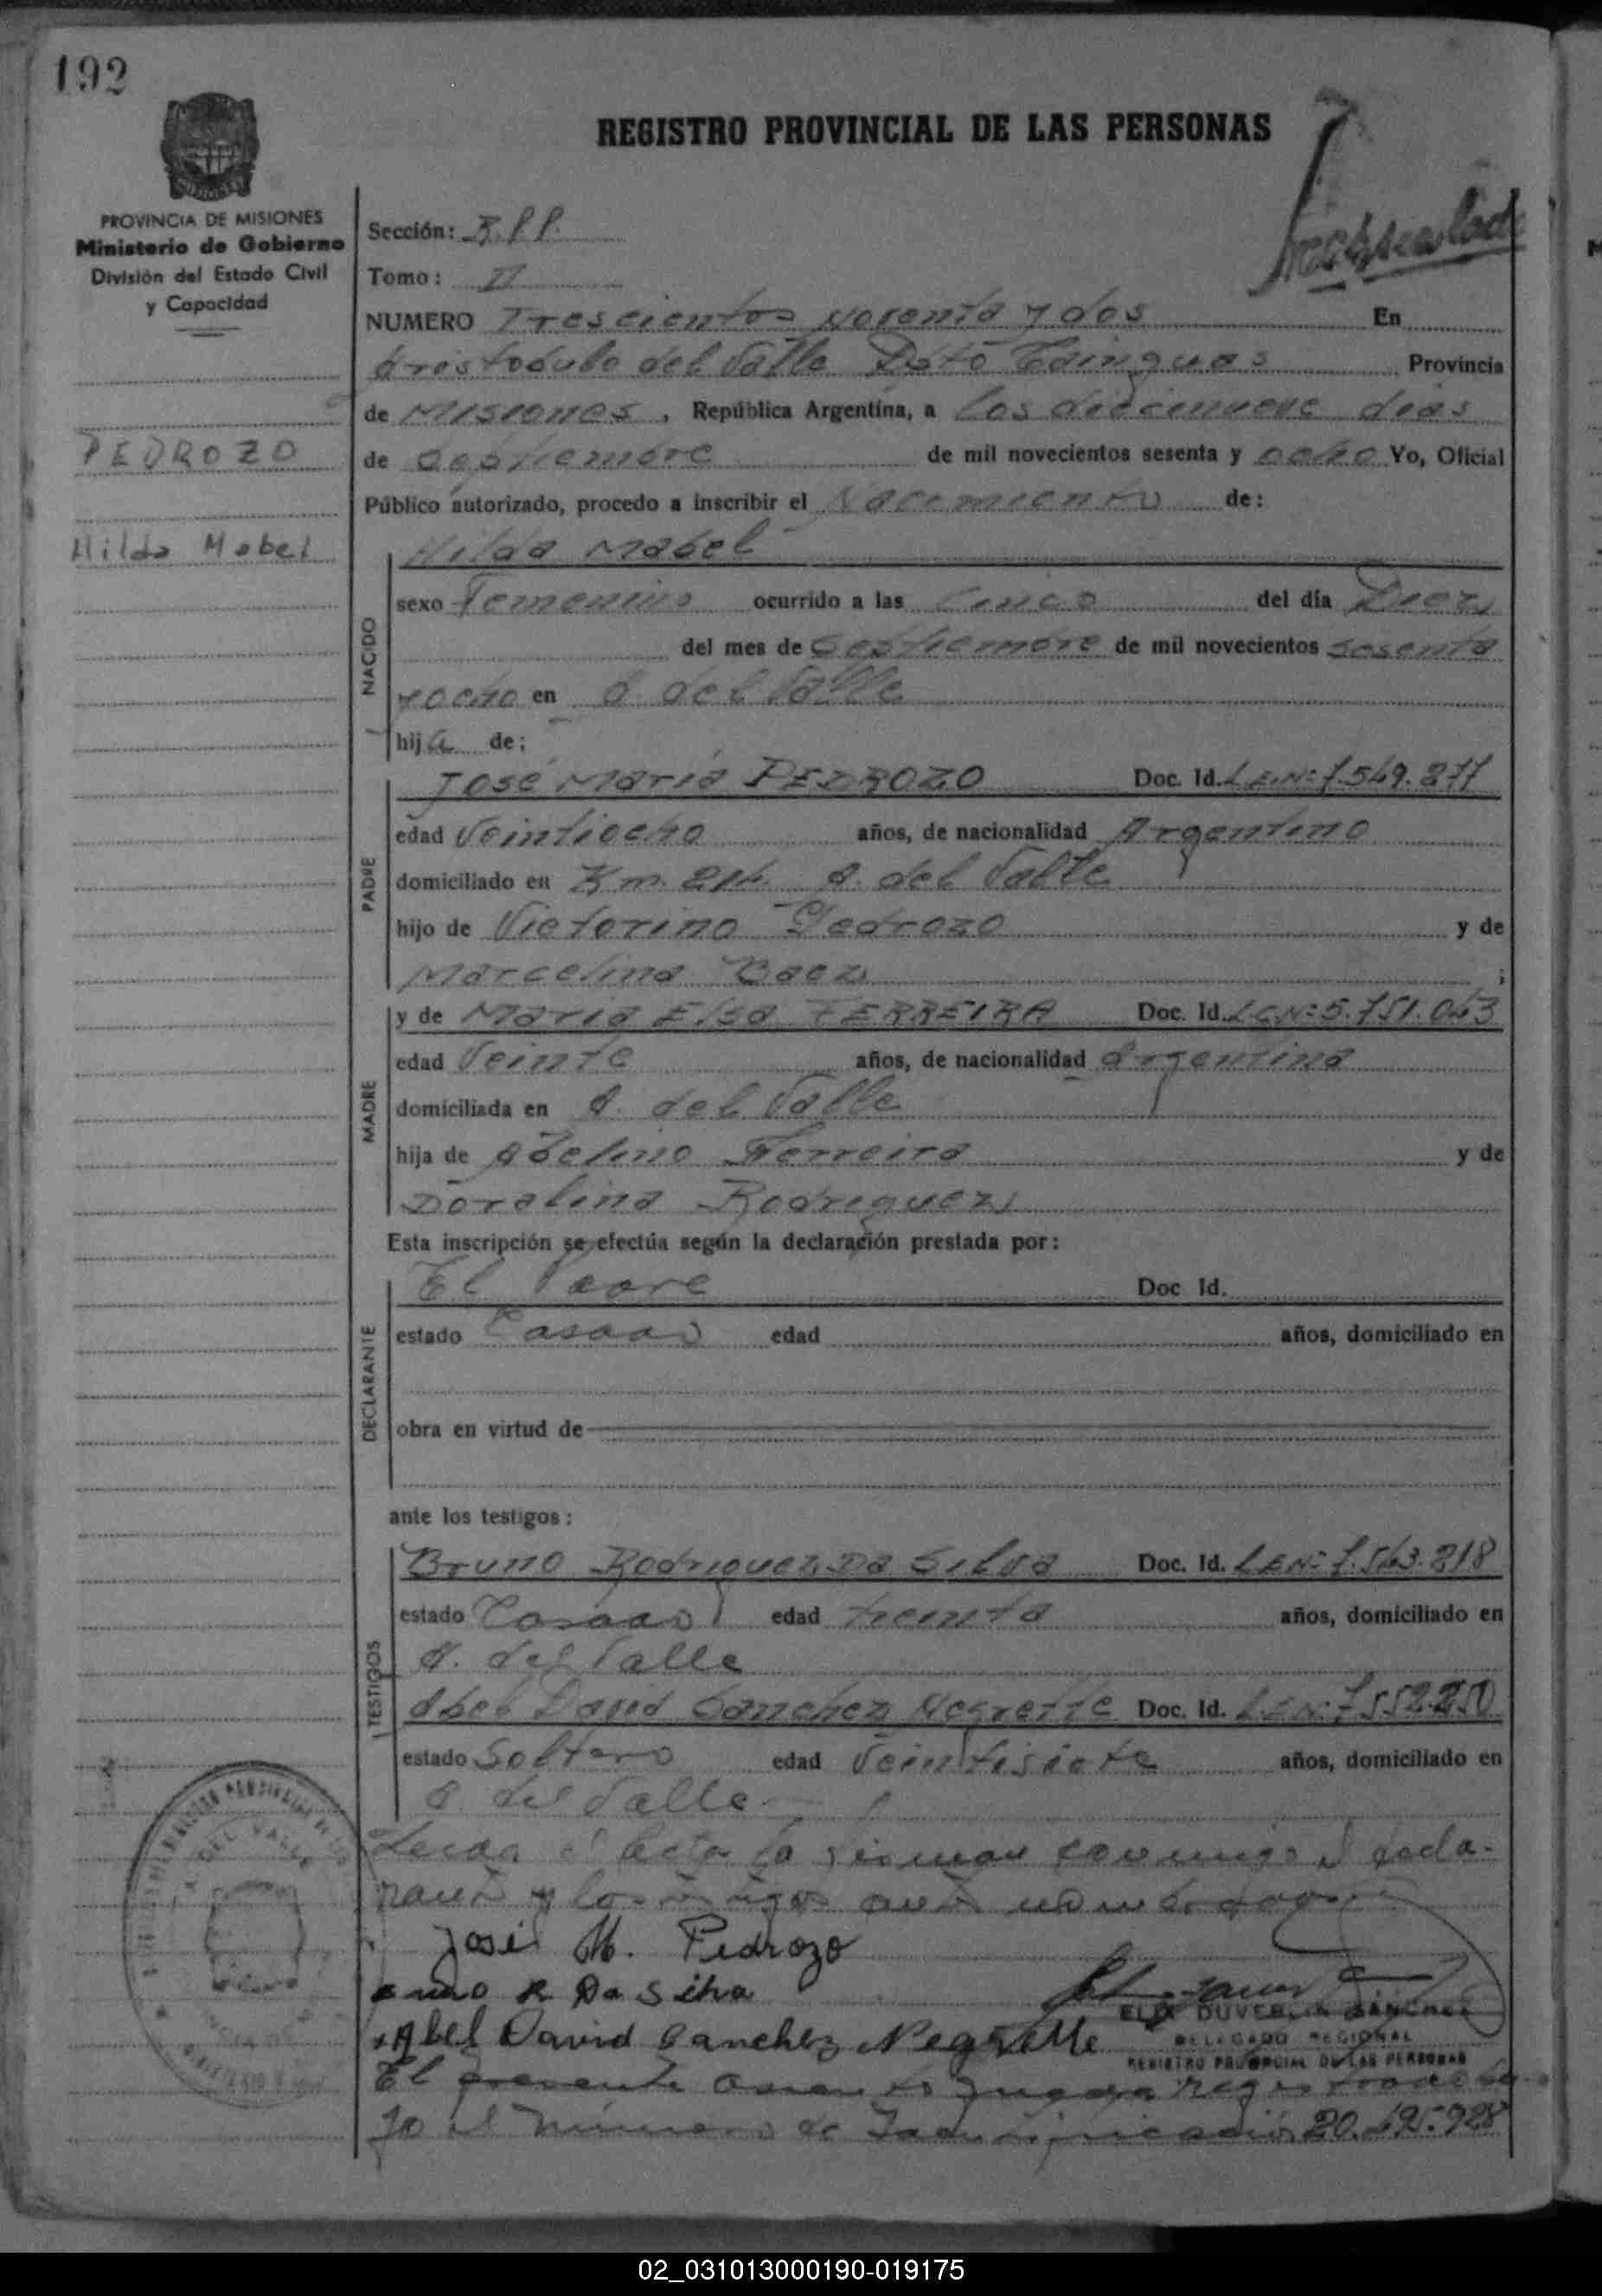 192
REGISTRO PROVINCIAL DE LAS PERSONAS
PROVINCIA DE MISIONES
Ministerio de Gobierno
División del Estado Civil
y Capacidad
PEDROZO
Hilda Mabel
Sección: R.P.P.
Tomo: II
NUMERO Trescientos Noventa y dos En
Aristobulo del Valle Dpto Cainguas Provincia
de Misiones, República Argentina, a los diecinueve dias
de Septiembre de mil novecientos sesenta y ocho Yo, Oficial
Público autorizado, procedo a inscribir el Nacimiento de:
NACIDO
Hilda Mabel
sexo Femenino ocurrido a las cinco del día Diez
del mes de Septiembre de mil novecientos sesenta
y ocho en A. del Valle
hija de:
PADRE
José María PEDROZO Doc. Id. L.E.Nº 7.549.877
edad Veintiocho años, de nacionalidad Argentino
domiciliado en Km. A. del Valle
hijo de Victorino Pedrozo y de
Marcelina Baez ;
MADRE
y de Maria Elsa FERREIRA Doc. Id. L.C.Nº 5.751.043
edad Veinte años, de nacionalidad Argentina
domiciliada en A. del Valle
hija de Adelino Ferreira y de
Doralina Rodriguez
Esta inscripción se efectúa según la declaración prestada por:
DECLARANTE
El Padre Doc Id.
estado Casado edad años, domiciliado en
obra en virtud de
ante los testigos:
TESTIGOS
Bruno Rodriguez Da Silva Doc. Id. L.E.Nº 7.543.218
estado Casado edad treinta años, domiciliado en
A. del Valle
Abel David Sanchez Negrette Doc. Id. L.E.Nº 7.552.250
estado Soltero edad Veintisiete años, domiciliado en
A. del Valle
Leida el Acta la firman conmigo el decla-
rante y los testigos ante nombrados
José M. Pedrozo
R Da Silva
Abel David Sanchez Negrette
DUVERLIN SANCHEZ
DELEGADO REGIONAL
REGISTRO PROVINCIAL DE LAS PERSONAS
El presente asiento queda registrado ba-
jo el Número de Identificación 20.495.928
02_031013000190-019175